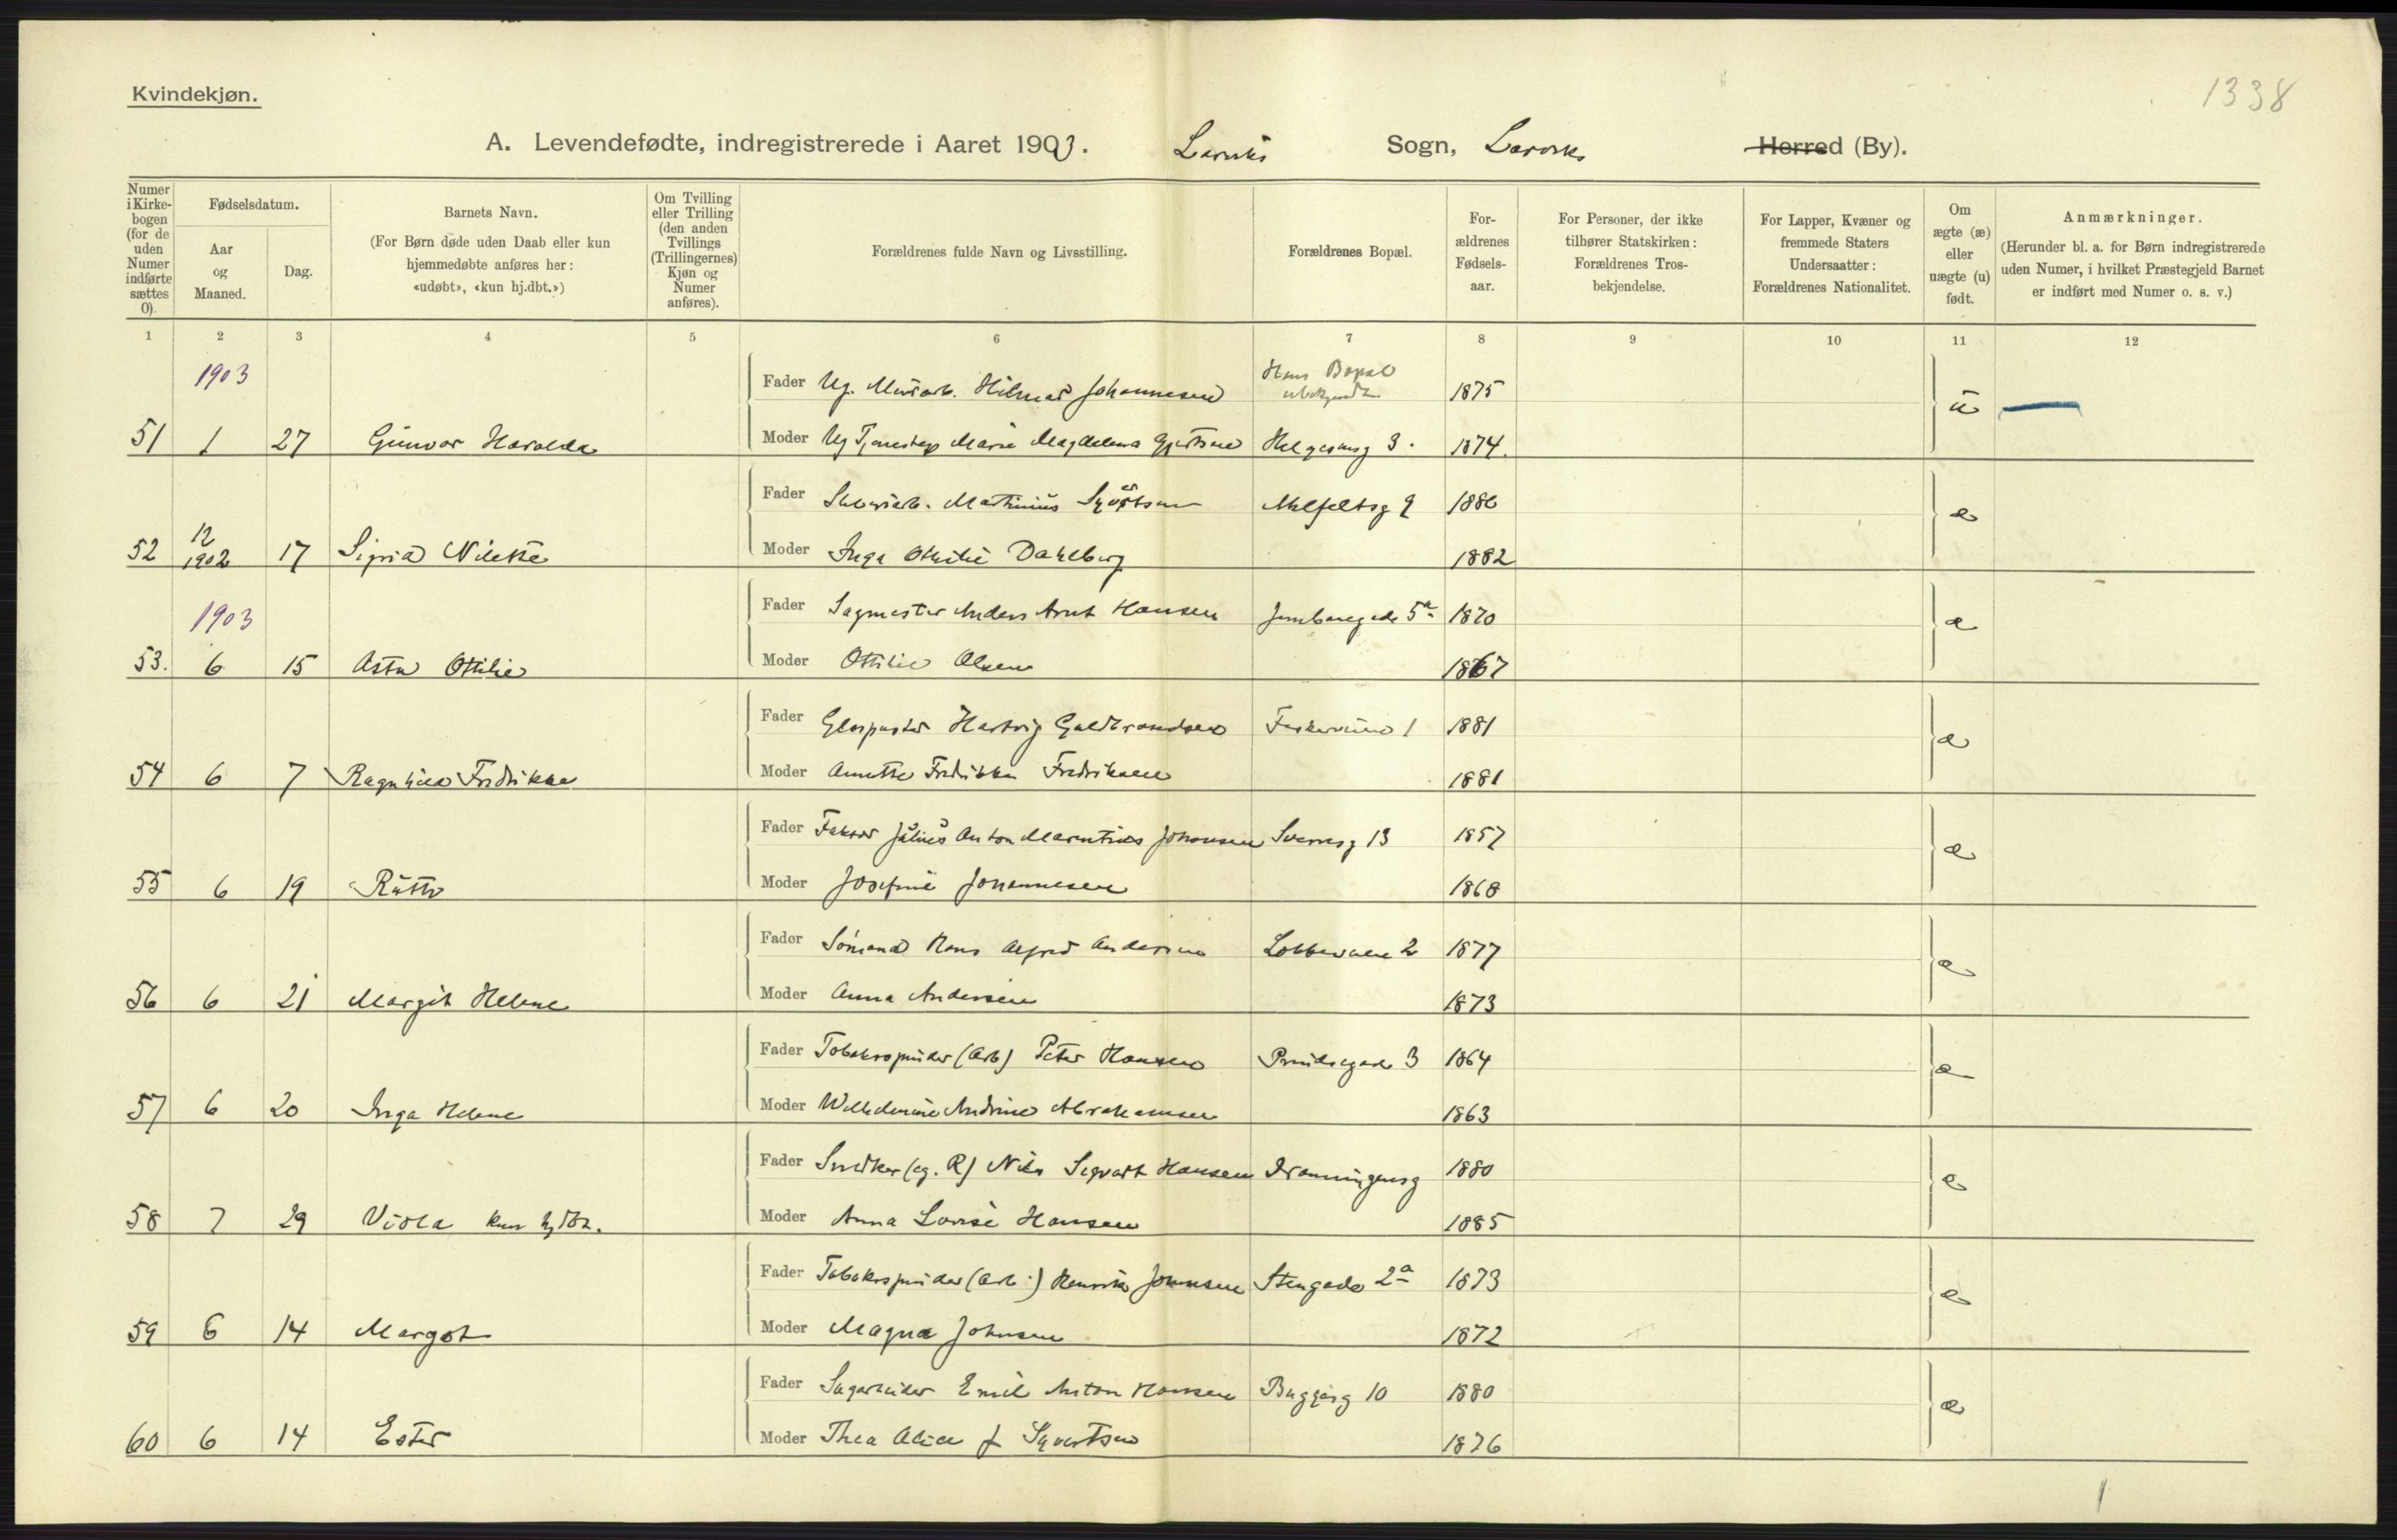 Kvindekjøn.
1338
A. Levendefødte, indregistrerede i Aaret 1903. Larviks Sogn, Larviks Herred (By).
Numer i Kirke-bogen (for de uden Numer indførte sættes 0).
Fødselsdatum.
Aar og Maaned.
Dag.
Barnets Navn.
(For Børn døde uden Daab eller kun hjemmedøbte anføres her: «udøbt», «kun hj.dbt.»)
Om Tvilling eller Trilling (den anden Tvillings (Trillingernes) Kjøn og Numer anføres).
Forældrenes fulde Navn og Livsstilling.
Forældrenes Bopæl.
For-ældrenes Fødsels-aar.
For Personer, der ikke tilhører Statskirken: Forældrenes Tros-bekjendelse.
For Lapper, Kvæner og fremmede Staters Undersaatter: Forældrenes Nationalitet.
Om ægte (æ) eller uægte (u) født.
Anmærkninger.
(Herunder bl. a. for Børn indregistrerede uden Numer, i hvilket Præstegjeld Barnet er indført med Numer o. s. v.)
1 2 3 4 5 6 7 8 9 10 11 12
1903 Fader Ug. Murarb. Hilmar Johannesen Hans Bopæl ubekjendt 1875 u
51 1 27 Gunvor Haralda Moder Ug Tjenestep Marie Magdelena Gjertsen Helgesensg 3. 1874.
Fader Martinius Syvertsen 9 1880 æ
52 12 1902 17 Sigrid Nilette Moder Inga Othilie Dahlberg 1882
1903 Fader Sagmester Anders Arnt Hansen Jernbanegade 5a 1870 æ
53. 6 15 Asta Ottilie Moder Ottilie Olsen 1867
Fader Glaspuster Hartvig Guldbrandsen 1 1881 æ
54 6 7 Ragnhild Fredrikke Moder Annette Fredrikke Fredriksen 1881
Fader Faktor Julius Anton Marentius Johansen Sverresg 13 1857 æ
55 6 19 Ruth Moder Josefine Johannesen 1868
Fader Sømand Hans Alfred Andersen 2 1877 æ
56 6 21 Margit Helene Moder Anna Andersen 1873
Fader Tobakspinder (Arb) Peter Hansen Prindsegade 3 1864 æ
57 6 20 Inga Helene Moder Wilhelmine Andrine Abrahamsen 1863
Fader Snedker (eg. R) Nils Sigvart Hansen Dronningensg 1880 æ
58 7 29 Viola kun hjdbt. Moder Anna Lovise Hansen 1885
Fader Tobakspinder (Arb.) Henrik Johnsen Stengade 2a 1873 æ
59 6 14 Margot Moder Magna Johnsen 1872
Fader Sagarbeider Emil Anton Hansen Buggesg 10 1880 æ
60 6 14 Ester Moder Thea Alice f Syvertsen 1876